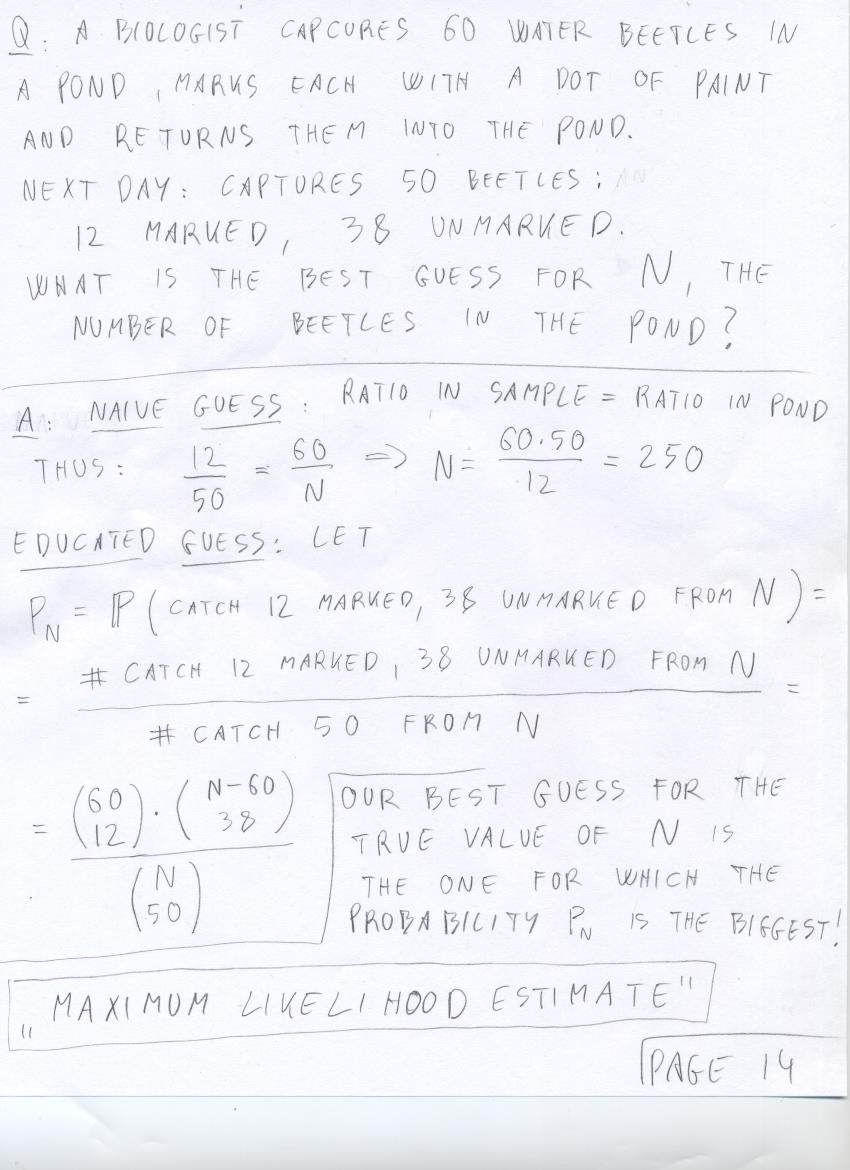 Q: A BIOLOGIST CAPCURES 60 WATER BEETLES IN
A POND, MARKS EACH WITH A DOT OF PAINT
AND RETURNS THEM INTO THE POND.
NEXT DAY: CAPTURES 50 BEETLES:
12 MARKED, 38 UNMARKED.
WHAT IS THE BEST GUESS FOR N, THE
NUMBER OF BEETLES IN THE POND?
A: NAIVE GUESS: RATIO IN SAMPLE = RATIO IN POND
THUS: 12/50 = 60/N => N = 60·50/12 = 250
EDUCATED GUESS: LET
P_N = ℙ(CATCH 12 MARKED, 38 UNMARKED FROM N) =
= # CATCH 12 MARKED, 38 UNMARKED FROM N =
# CATCH 50 FROM N
= (60 12)·(N-60 38)
(N 50)
OUR BEST GUESS FOR THE
TRUE VALUE OF N IS
THE ONE FOR WHICH THE
PROBABILITY P_N IS THE BIGGEST!
„MAXIMUM LIKELIHOOD ESTIMATE"
PAGE 14